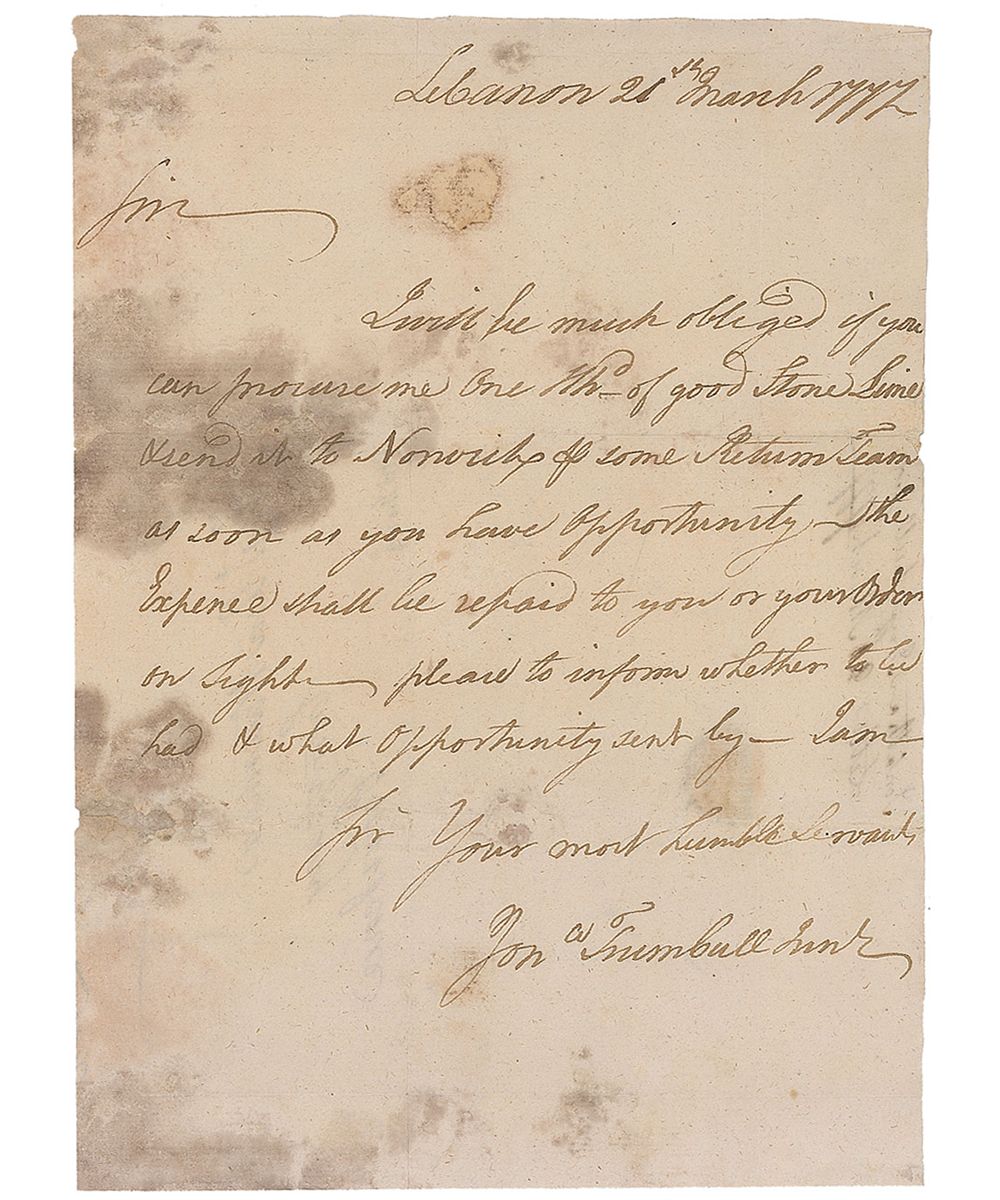 Lebanon 21th March 1777
Sir
I will be much obliged if you
can procure me One Hhd of good Stone Lime
& send it to Norwich ⅌ some Return Team
as soon as you have Opportunity — the
Expence shall be repaid to you or your Order
on Sight — please to inform whether to be
had & what Opportunity sent by — I am
Sir Your most humble Servant
Jona Trumbull Junr